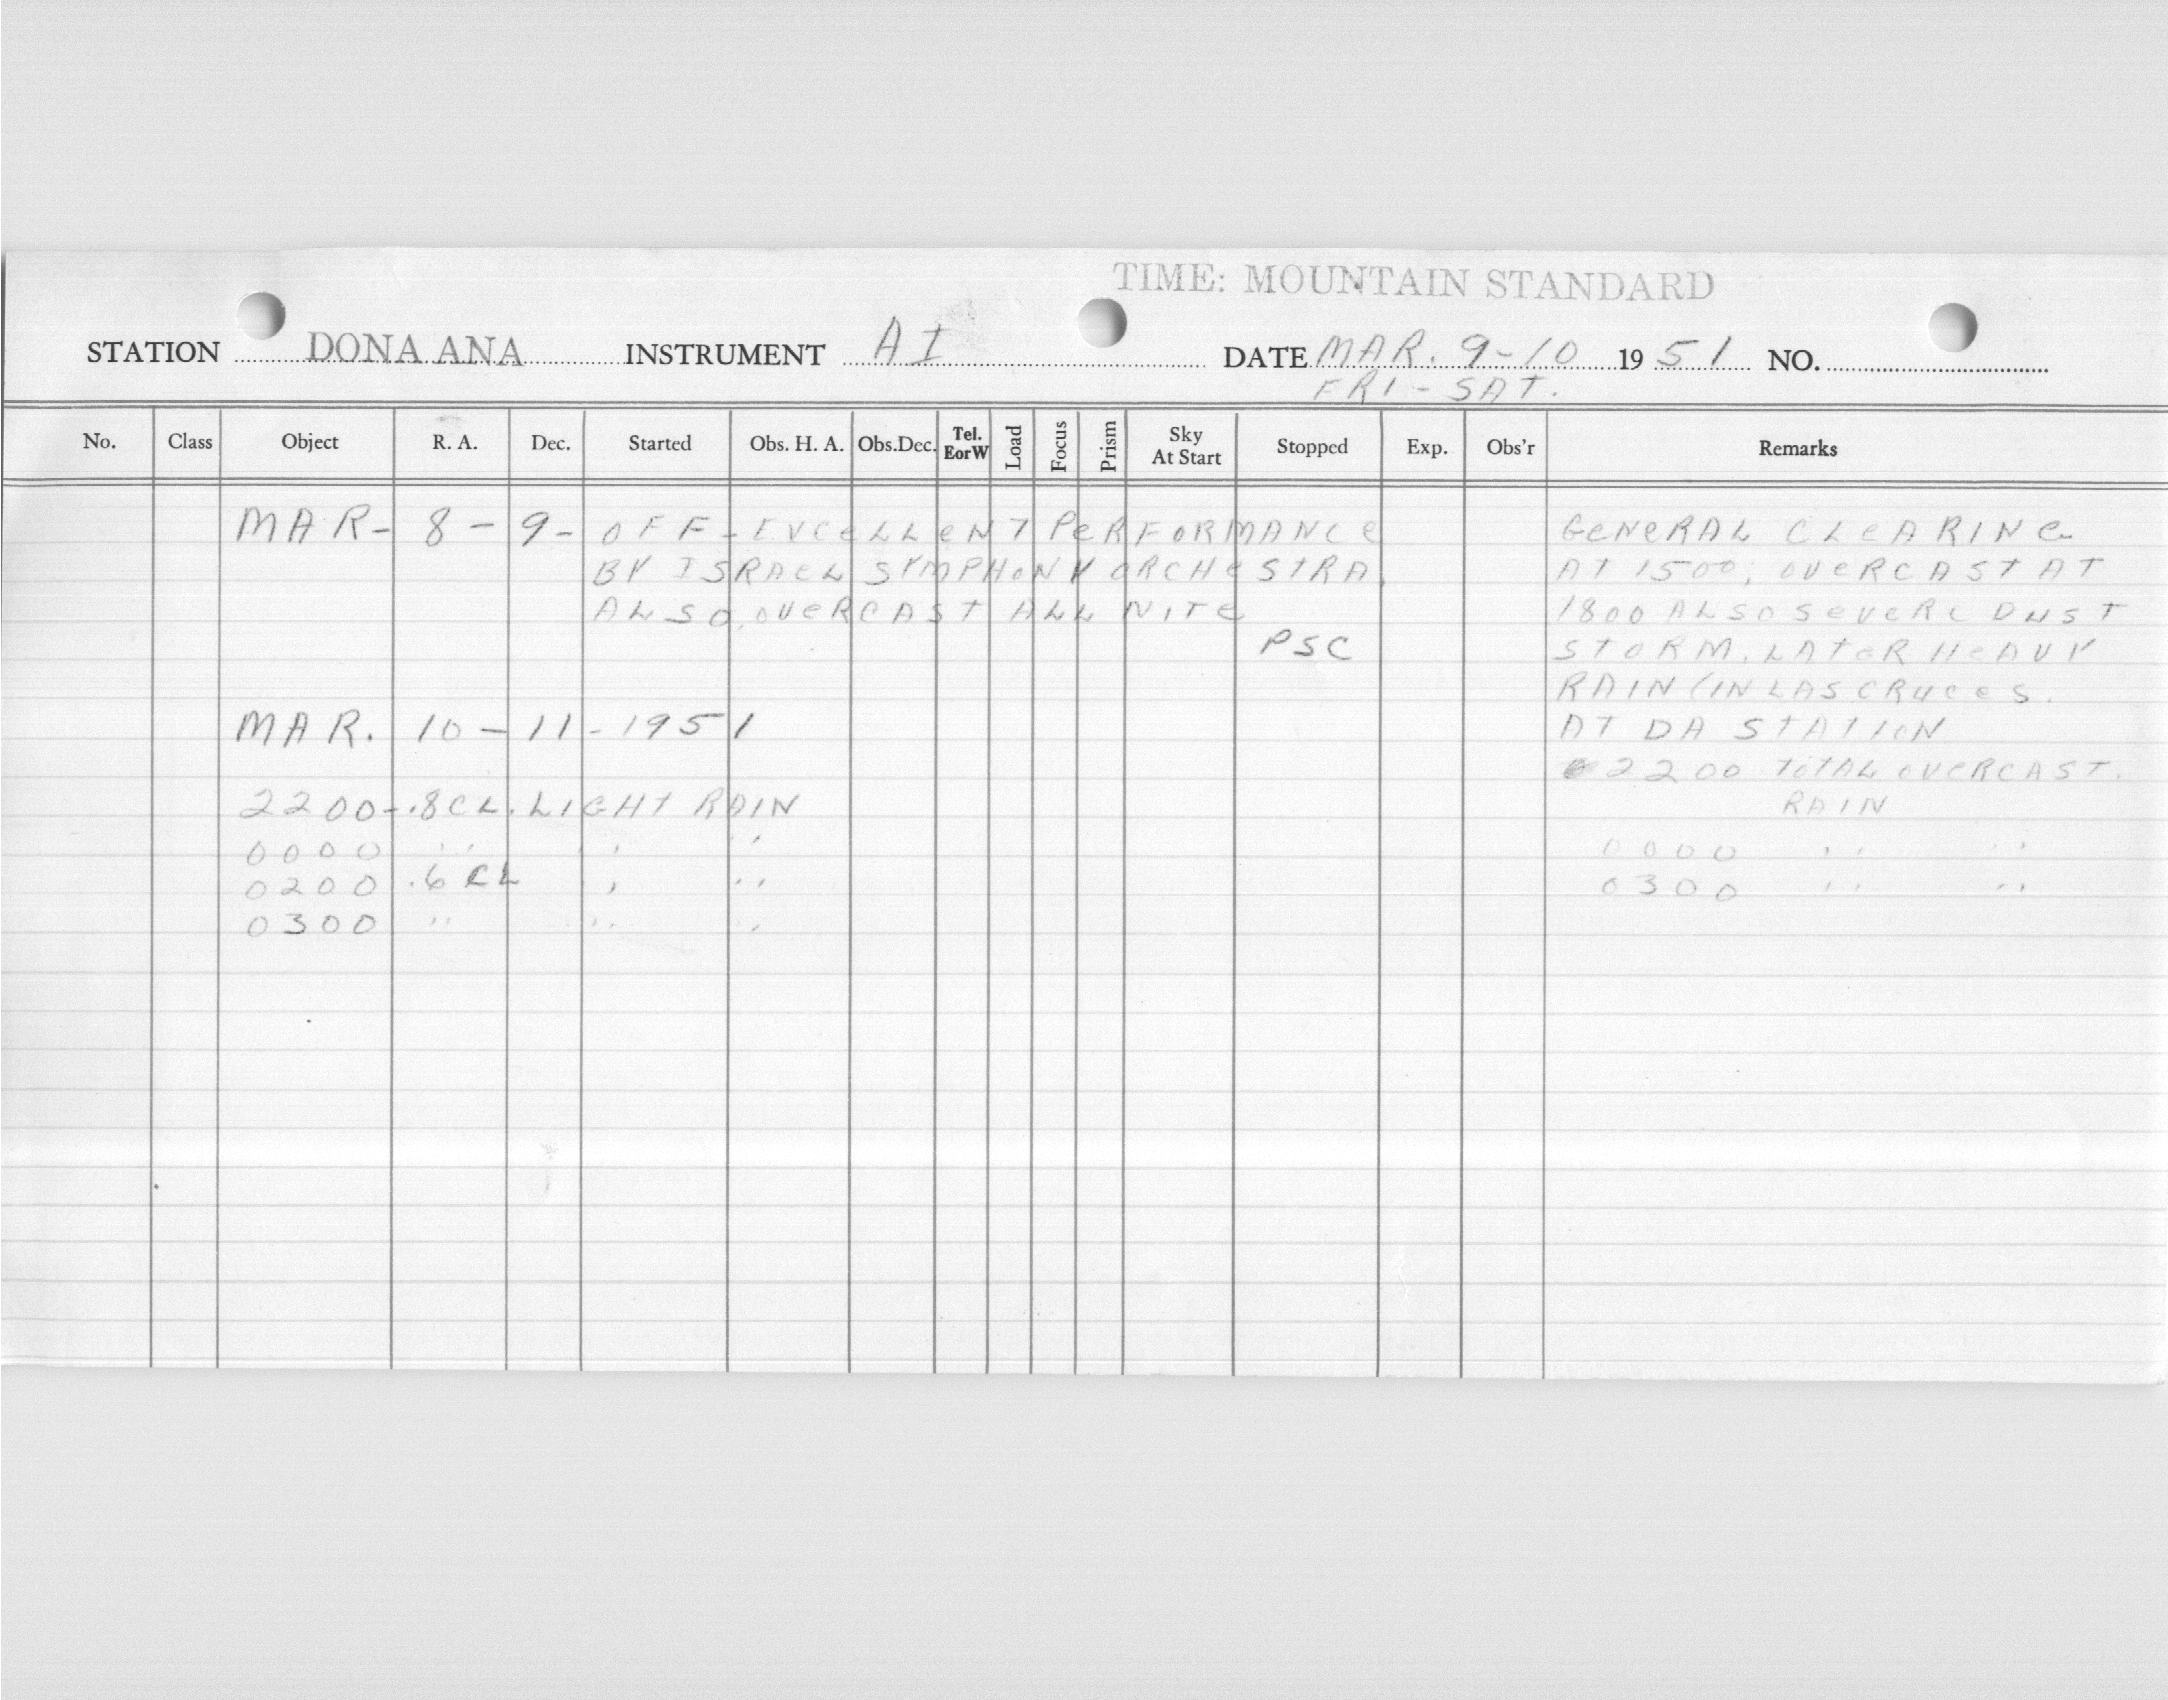 TIME: MOUNTAIN STANDARD
STATION DONA ANA INSTRUMENT AI DATE MAR. 9-10 1951 NO.
FRI - SAT.
No. Class Object R. A. Dec. Started Obs. H. A. Obs.Dec. Tel. EorW Load Focus Prism Sky At Start Stopped Exp. Obs'r Remarks
MAR- 8 - 9- OFF - EXCELLENT PERFORMANCE
BY ISRAEL SYMPHONY ORCHESTRA,
ALSO, OVERCAST ALL NITE
PSC
MAR. 10 - 11 - 1951
2200-.8 CL. LIGHT RAIN
0000 " " "
0200 .6 CL " "
0300 " " "
GENERAL CLEARING
AT 1500, OVERCAST AT
1800 ALSO SEVERE DUST
STORM. LATER HEAVY
RAIN (IN LAS CRUCES.
AT DA STATION
2200 TOTAL OVERCAST.
RAIN
0000 " "
0300 " "